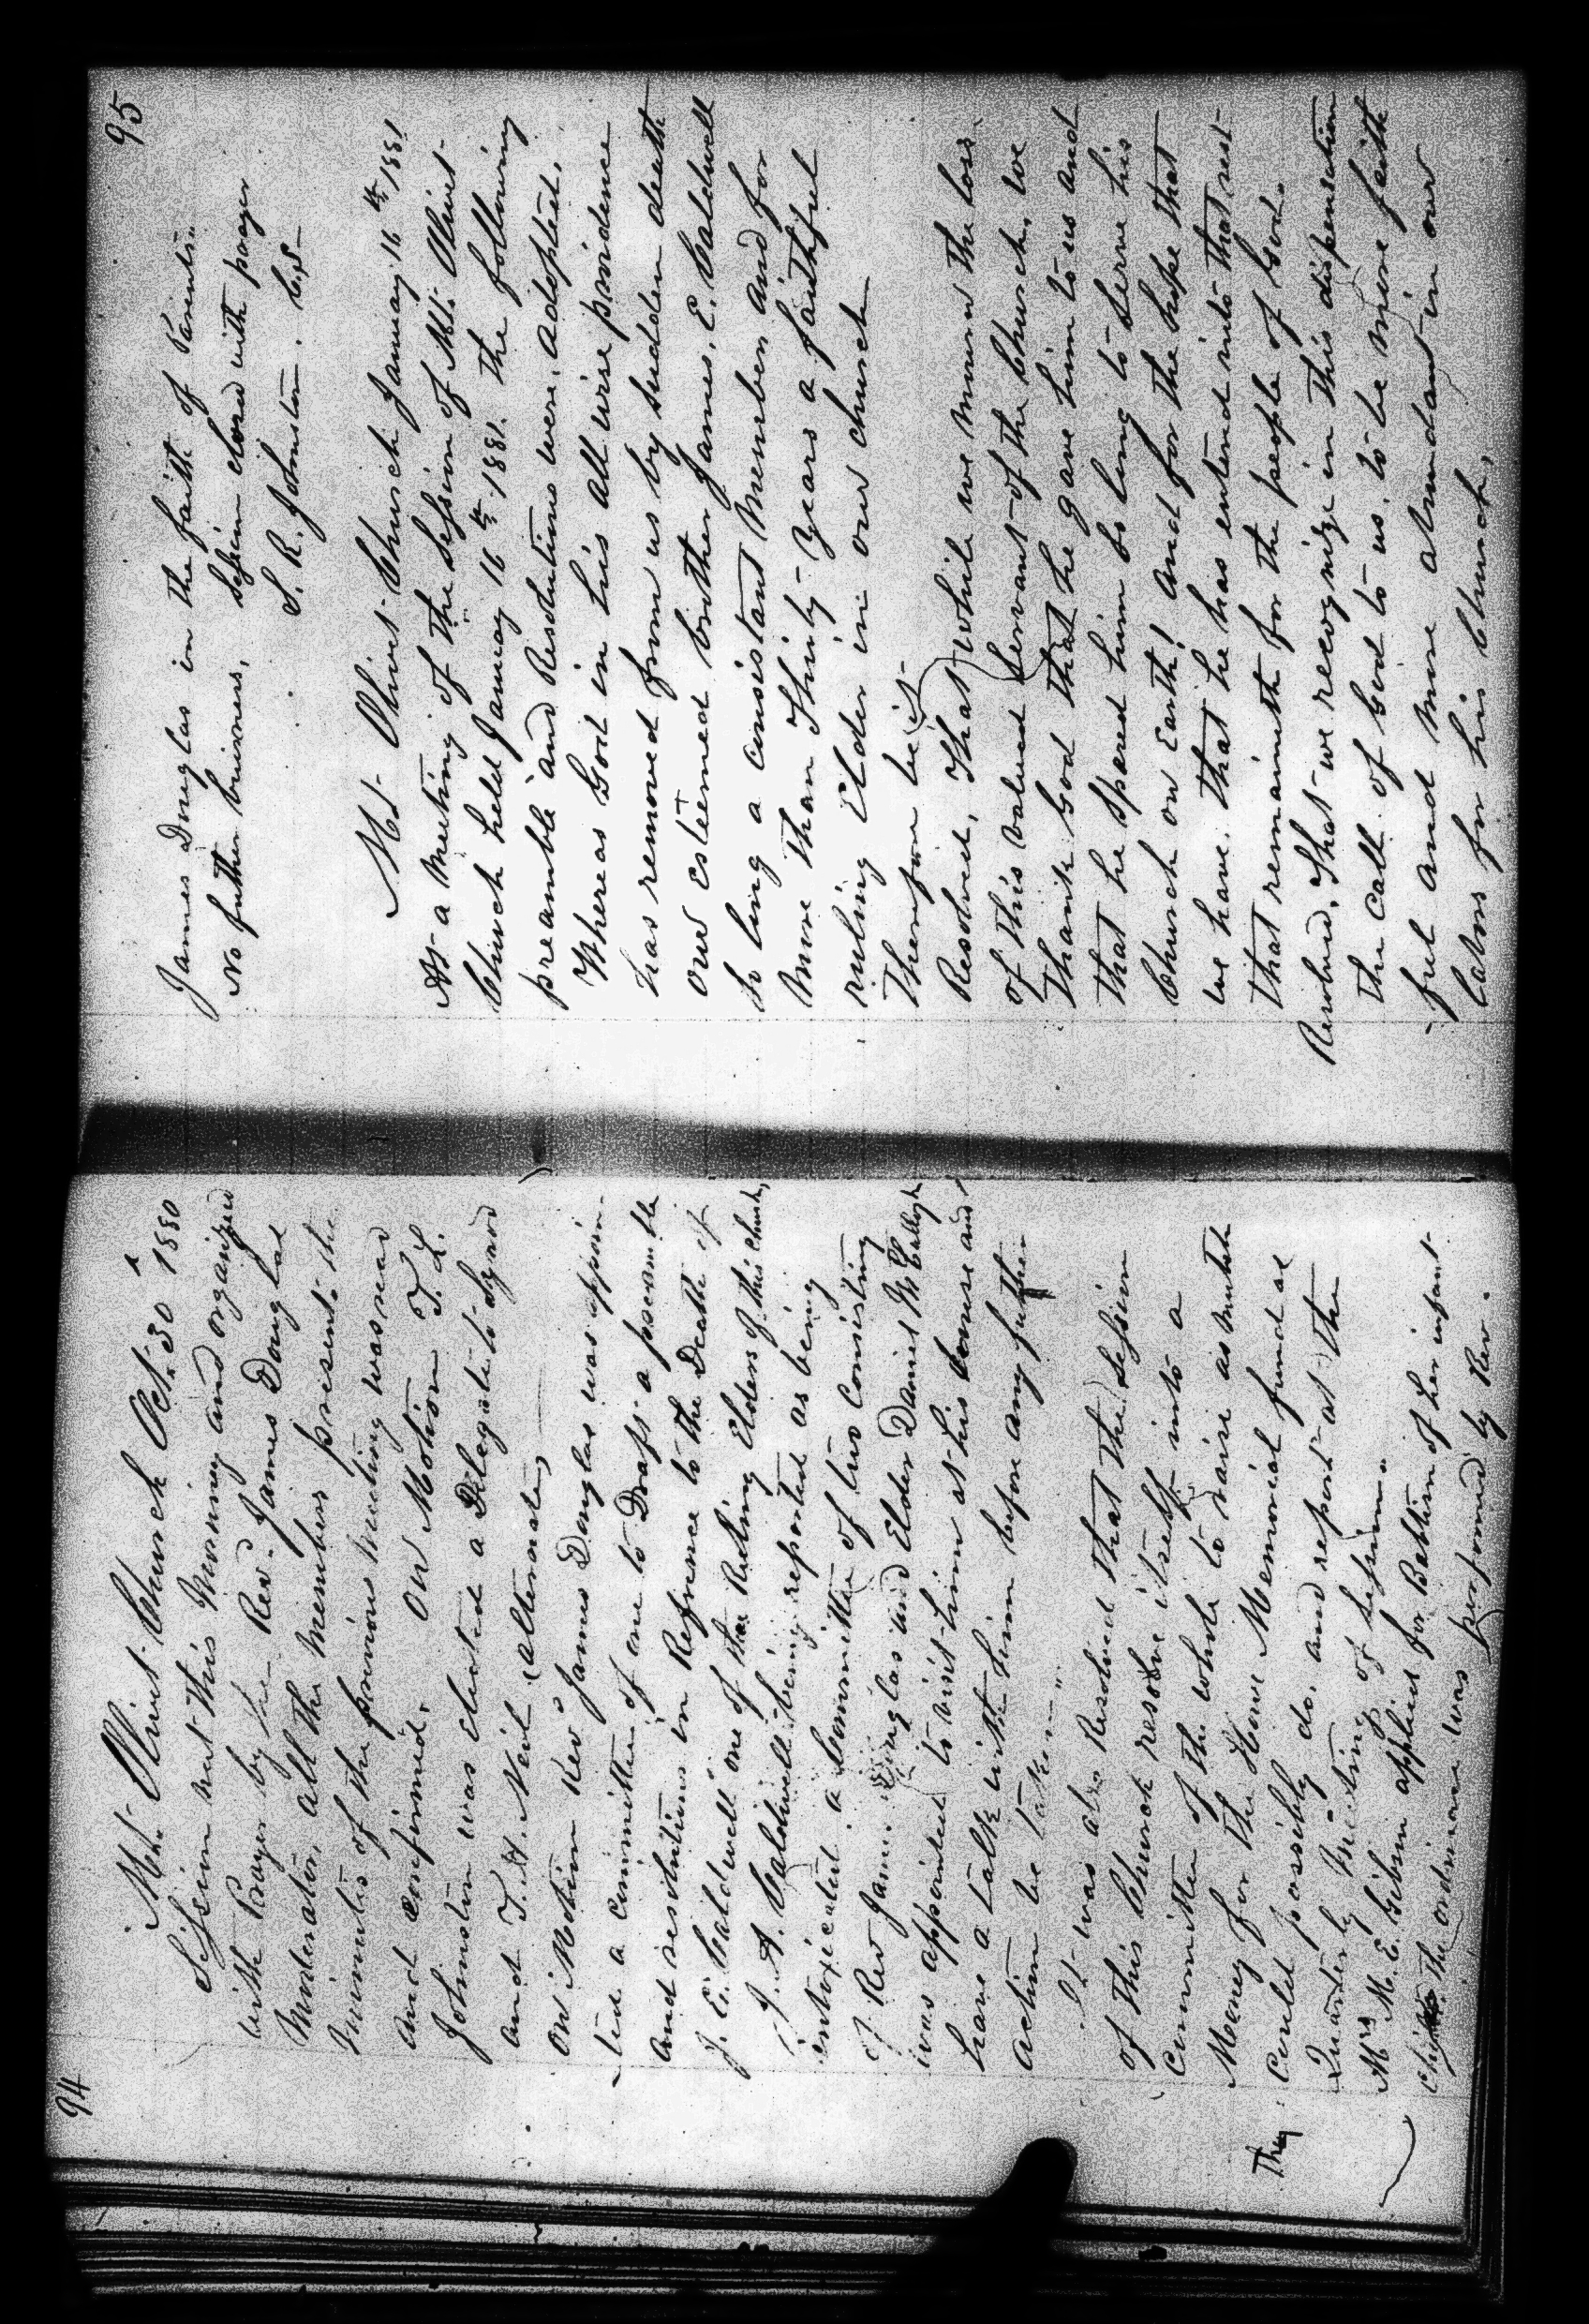 94
Mt. Olivet Church Oct. 30th 1880
Session met this Morning and organized
with Prayer by the Rev. James Douglas
Moderator, all the Members present. the
Minutes of the previous meeting was read
and confirmed. on Motion T. L.
Johnston was elected a Delegate to Synod
and T. H. Neil (alternate)
on Motion Revd James Douglas was appoin-
ted a committee of one to Draft a preamble
and resolutions in Refrence to the Death of
J. E. Caldwell one of the Ruling Elders of this church,
J. A. Caldwell being reported as being
intoxicated. a Committee of two consisting
of Rev James Douglas and Elder Daniel McCullogh
was appointed to visit him at his house and
have a talk with him before any futher
action be taken"
It was also Resolved that the Session
of this Church resolve itself into a
Committee of the whole to raise as much
Money for the Howe Memorial fund as
They could possibly do, and report at the
Quarterly Meeting of Session"
Mrs M. E. Gibson applied for Babtism of her infant
child the ordinance was performed by Rev.
95
James Douglas in the faith of Parents"
No futher business, Session closed with prayer
S. R. Johnston. C,S
Mt Olivet Church January 16th 1881
At a Meeting of the Session of Mt. Olivet
Church held January 16th 1881. the following
preamble and Resolutions were. adopted.
Whereas God in his all wise providence
has removed from us by sudden death
our esteemed brother James. E. Caldwell
so long a consistant Member and for
more than Thirty Years a faithful
ruling Elder in our church
Therefore be it
Resolved, That while we mourn the loss
of this valued Servant of the Church, we
Thank God that he gave him to us and
that he spared him so long to serve his
Church on Earth! And for the hope that
we have. that he has entered into that rest
that remaineth for the people of God.
Resolved, That we recognize in this dispensation
the call of God to us, to be more faith
ful and more abundant in our
labors for his church,